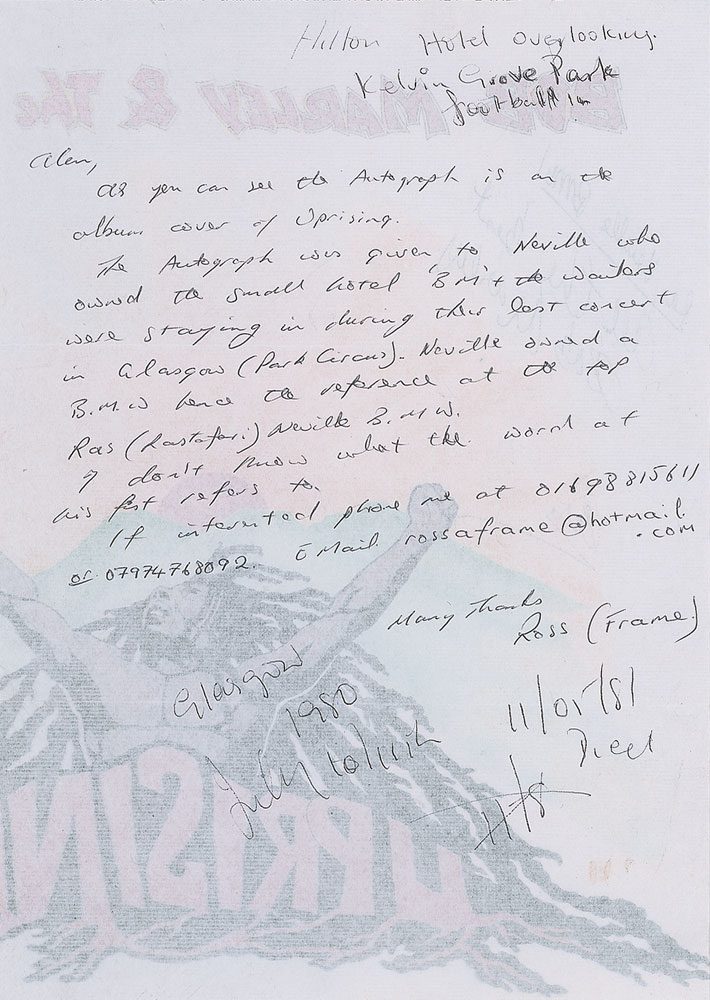 Hilton Hotel overlooking.
Kelvin Grove Park
football in
Alen,
as you can see the Autograph is on the
album cover of Uprising.
The Autograph was given to Neville who
owned the small hotel 'B M' + the wailers
were staying in during their last concert
in Glasgow (Park Circus). Neville owned a
B.M.W hence the reference at the top
Ras (Rastafari) Neville B.M.W.
I don't know what the word at
his fist refers to.
If interested phone me at 01698815611
or 07974768092. EMail rossaframe@hotmail
.com
Many Thanks
Ross (Frame)
Glasgow
1980
July 10/11th
11/05/81
Died
BOB MARLEY & The
UPRISIN